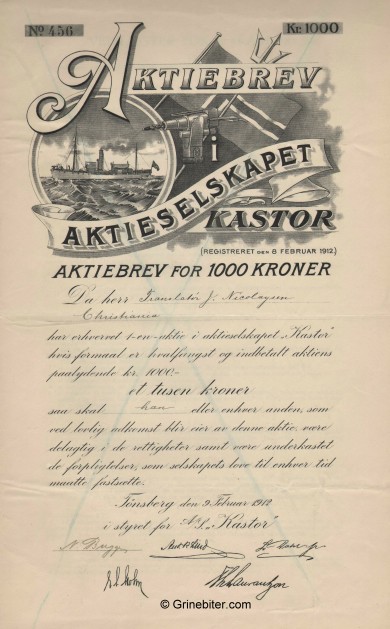 No 456 Kr. 1000
AKTIEBREV
i
AKTIESELSKAPET
KASTOR
(REGISTRERET DEN 8 FEBRUAR 1912.)
AKTIEBREV FOR 1000 KRONER
Da herr Translatør J. Nicolaysen
Christiania
har erhvervet 1-en-aktie i aktieselskapet „Kastor"
hvis formaal er hvalfangst og indbetalt aktiens
paalydende kr. 1000.-
et tusen kroner
saa skal han eller enhver anden, som
ved lovlig adkomst blir eier av denne aktie, være
delagtig i de rettigheter samt være underkastet
de forpligtelser, som selskapets love til enhver tid
maatte fastsette.
Tønsberg den 9 Februar 1912
i styret for A/S „Kastor"
N. Bugge
© Grinebiter.com